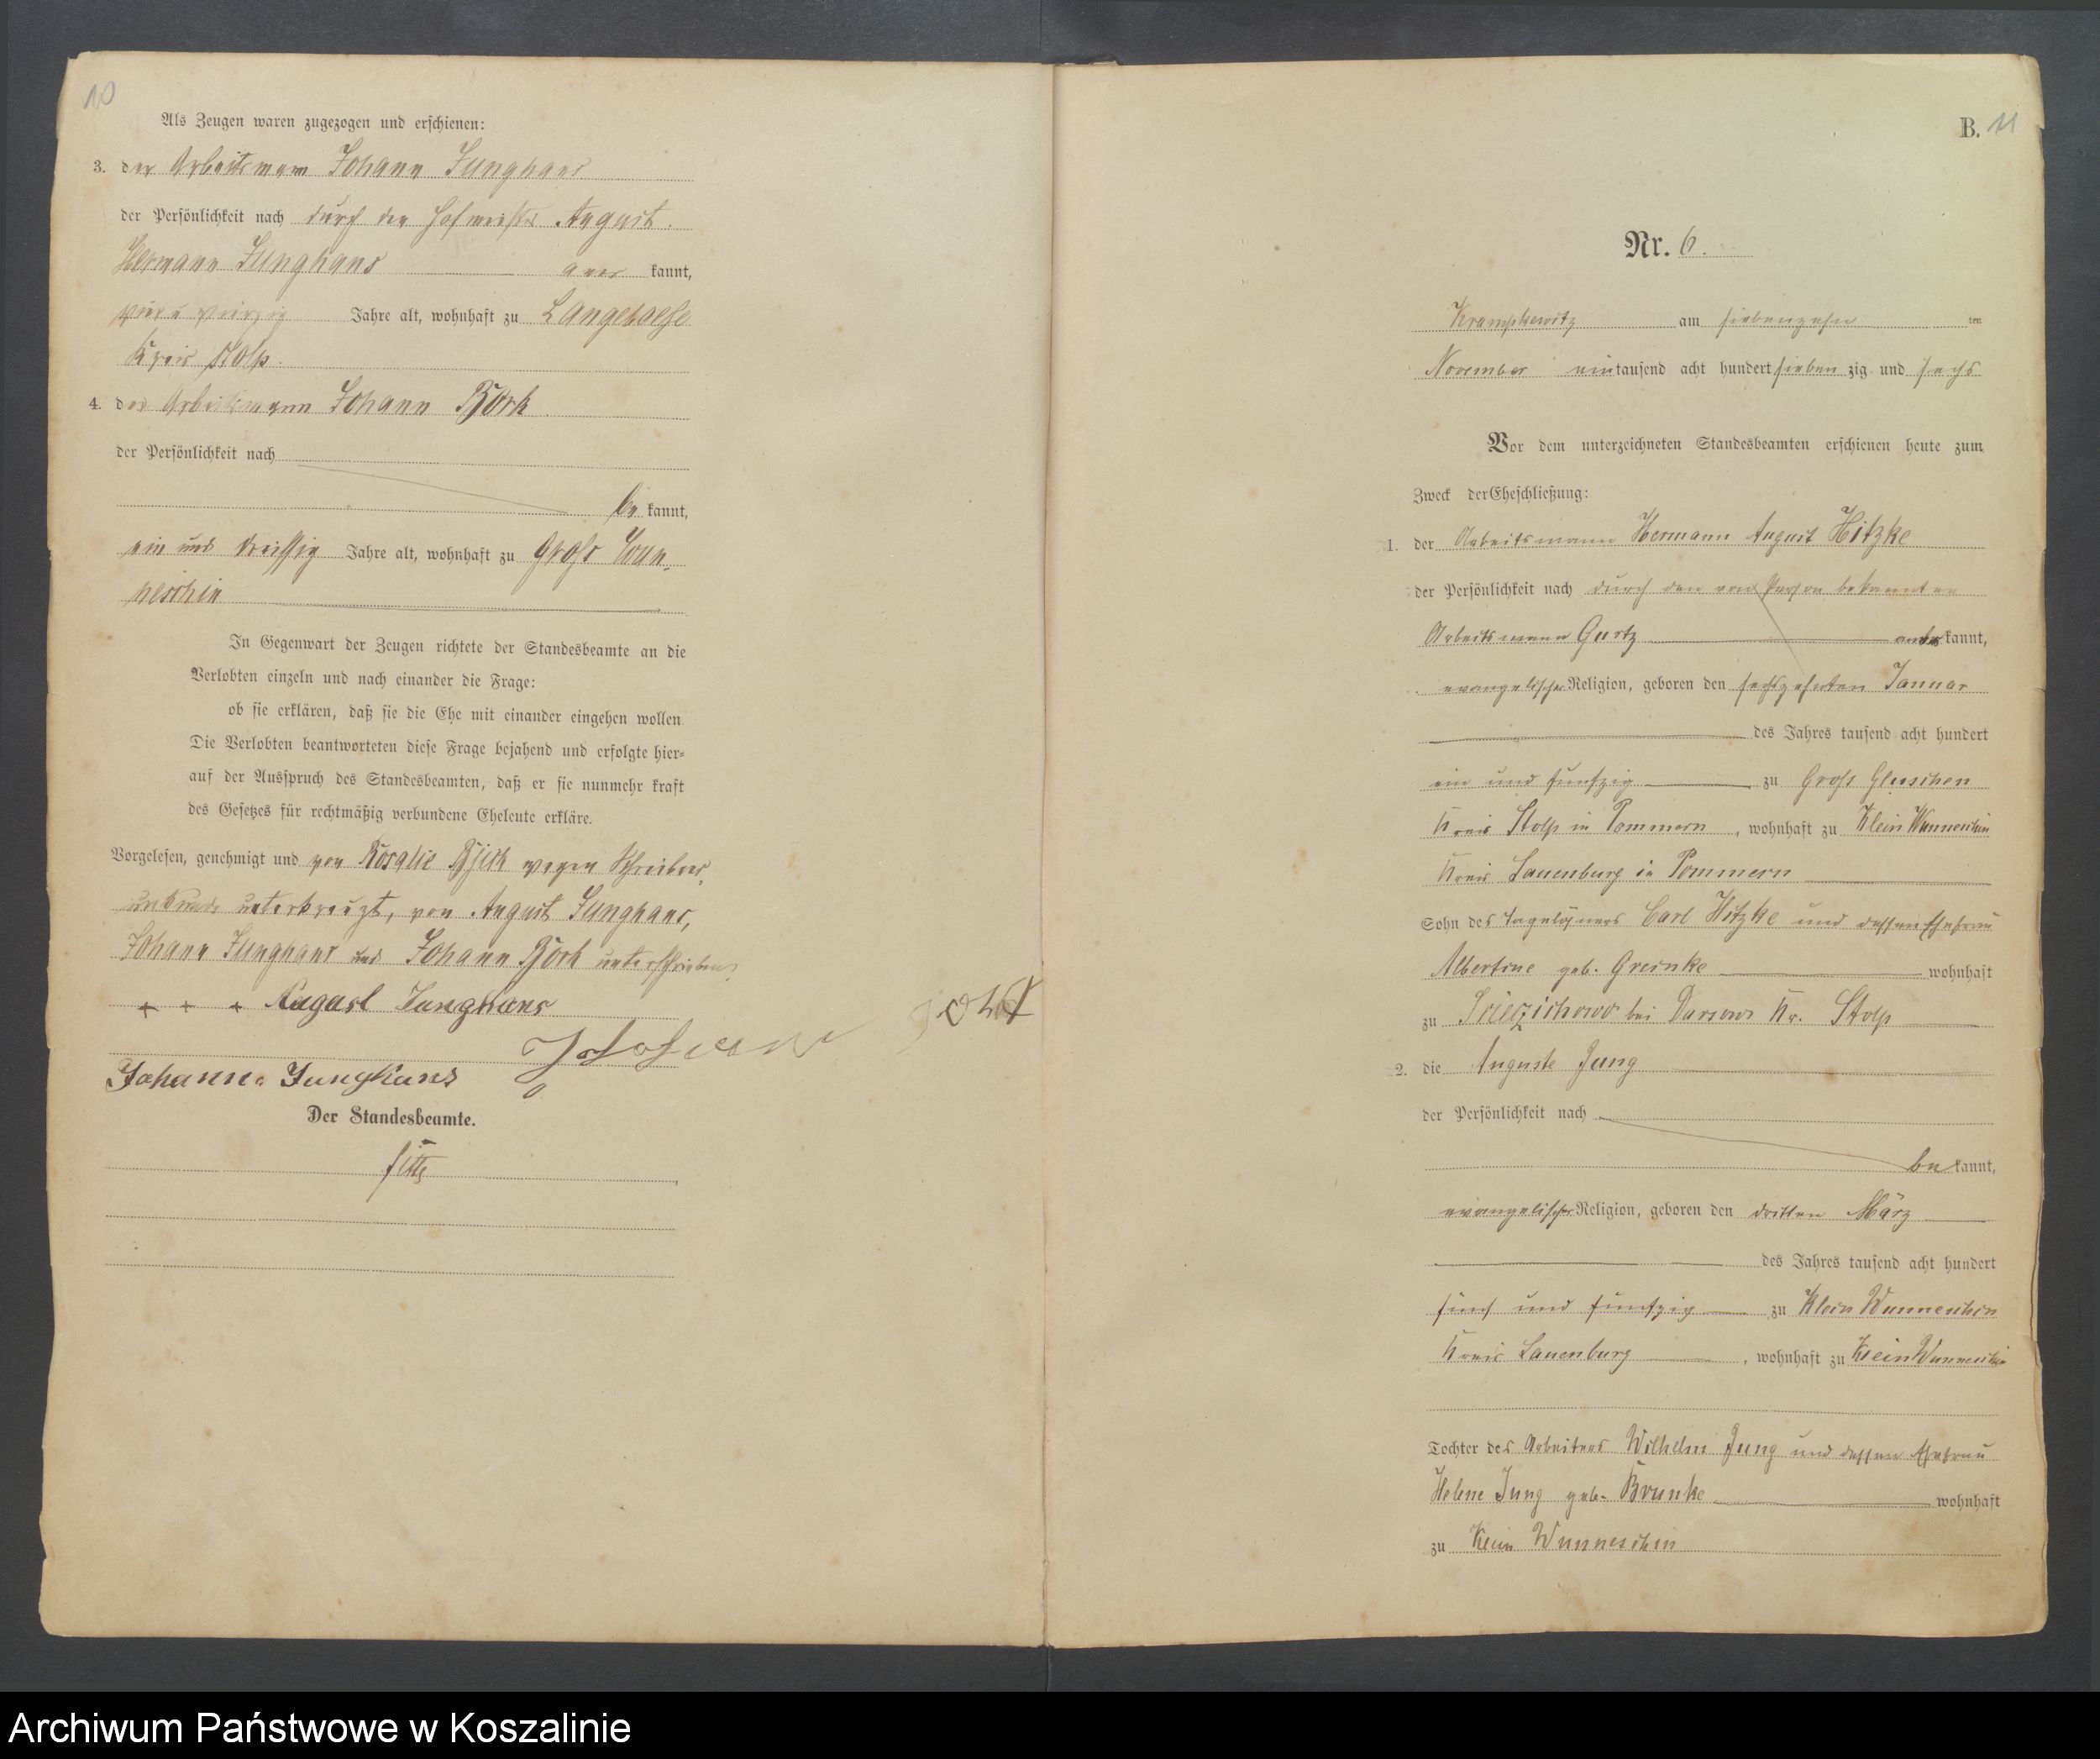 10
Als Zeugen waren zugezogen und erschienen:
3. der Arbeitsmann Johann Junghans
der Persönlichkeit nach durch den Hofmeister August
Hermann Junghans aner kannt,
Jahre alt, wohnhaft zu Langeboese
Kreis Stolp.
4. der Arbeitsmann Johann Bork
der Persönlichkeit nach
be kannt,
ein und dreißig Jahre alt, wohnhaft zu Groß Wun-
neschin
In Gegenwart der Zeugen richtete der Standesbeamte an die
Verlobten einzeln und nach einander die Frage:
ob sie erklären, daß sie die Ehe mit einander eingehen wollen.
Die Verlobten beantworteten diese Frage bejahend und erfolgte hier-
auf der Ausspruch des Standesbeamten, daß er sie nunmehr kraft
des Gesetzes für rechtmäßig verbundene Eheleute erkläre.
Vorgelesen, genehmigt und von Rosalie wegen Schreibens-
unkunde unterkreuzt, von August Junghans,
Johann Junghans und Johann Bork unterschrieben.
+ + + August Junghans
Johann Junghans
Der Standesbeamte.
B. 11
Nr. 6.
Krampkewitz am siebenzehn ten
November eintausend acht hundert sieben zig und sechs
Vor dem unterzeichneten Standesbeamten erschienen heute zum
Zweck der Eheschließung:
1. der Arbeitsmann Hermann August Hitzke
der Persönlichkeit nach durch den von Person bekannten
Arbeitsmann Gurtz kannt,
evangelischer Religion, geboren den sechszehnten Januar
des Jahres tausend acht hundert
ein und funfzig zu Groß Gluschen
Kreis Stolp in Pommern, wohnhaft zu Klein Wunneschin
Kreis Lauenburg in Pommern
Sohn des Tagelöhners Carl Hitzke und dessen Ehefrau
Albertine geb. Greinke wohnhaft
zu bei Darsow Kr. Stolp
2. die Auguste Jung
der Persönlichkeit nach
be kannt,
evangelischer Religion, geboren den dritten März
des Jahres tausend acht hundert
fünf und funfzig zu Klein Wunneschin
Kreis Lauenburg, wohnhaft zu Klein Wunneschin
Tochter des Arbeiters Wilhelm Jung und dessen Ehefrau
Helene Jung geb. Brunke wohnhaft
zu Klein Wunneschin
Archiwum Państwowe w Koszalinie